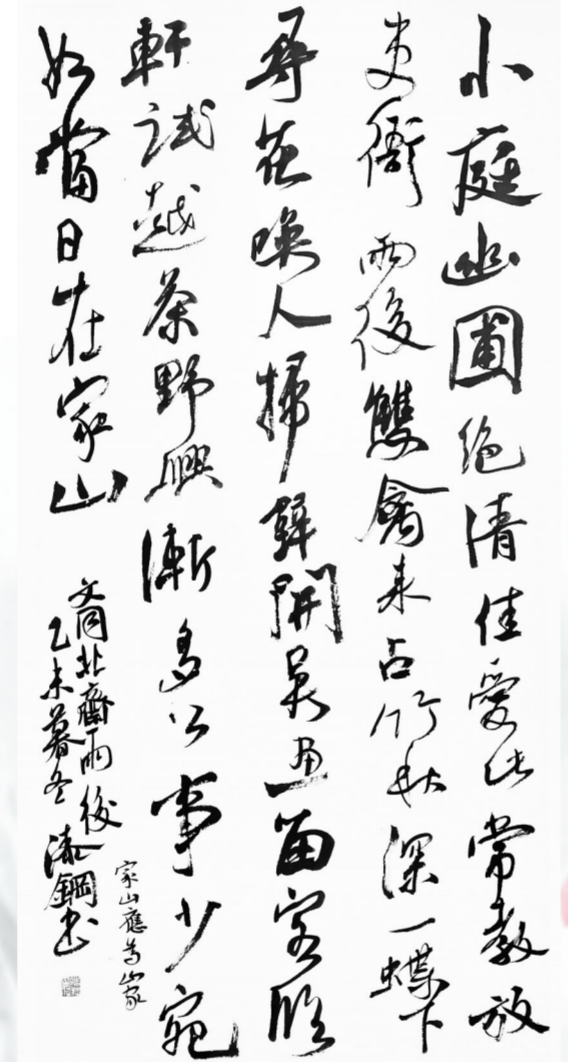 小庭幽圃絕清佳愛此常教放
吏衙雨後雙禽来占竹秋深一蝶下
尋花喚人掃壁開吳画留客臨
軒試越茶野興漸多公事少宛
如當日在家山
文同北齋雨後
乙未暮冬鋼书
家山應為山家